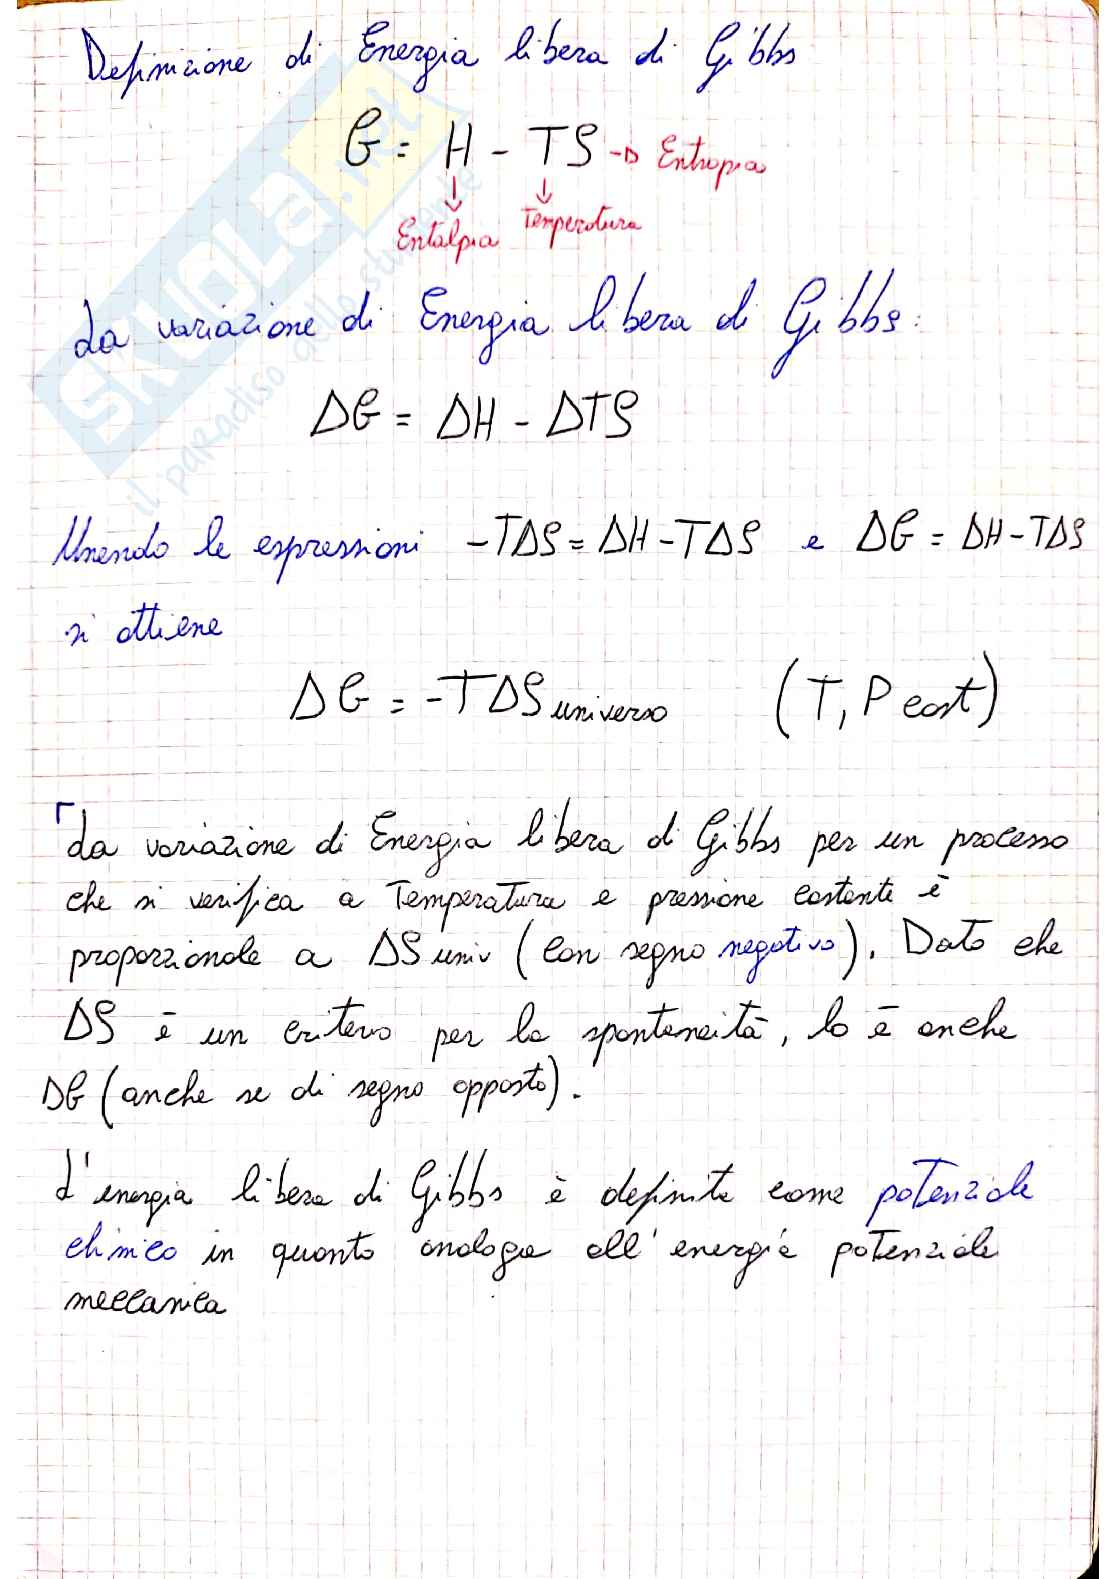 Definizione di Energia libera di Gibbs
G = H - TS → Entropia
Entalpia Temperatura
La variazione di Energia libera di Gibbs:
ΔG = ΔH - ΔTS
Unendo le espressioni -TΔS = ΔH - TΔS e ΔG = ΔH - TΔS
si ottiene
ΔG = -TΔS universo (T, P cost)
La variazione di Energia libera di Gibbs per un processo
che si verifica a Temperatura e pressione costante è
proporzionale a ΔS univ (con segno negativo). Dato che
ΔS è un criterio per la spontaneità, lo è anche
ΔG (anche se di segno opposto).
L'energia libera di Gibbs è definita come potenziale
chimico in quanto analoga all'energia potenziale
meccanica
SKUOLA.net
il paradiso dello studente